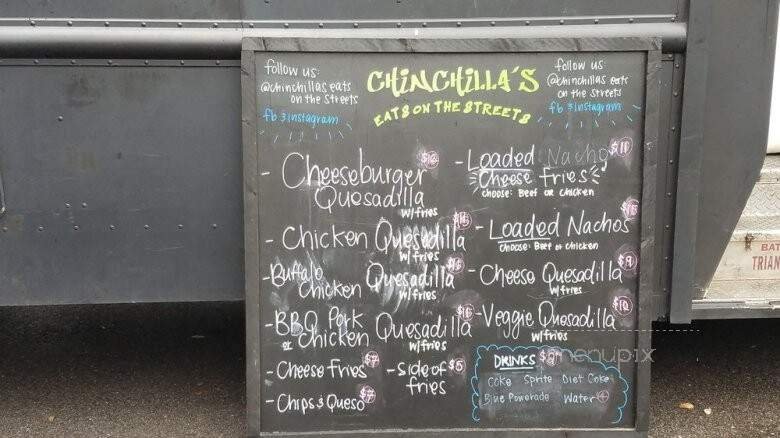 follow us:
@chinchillas eats
on the streets
fb & instagram
CHINCHILLA'S
EATS ON THE STREETS
follow us
@chinchillas eats
on the streets
fb & instagram
- Cheeseburger
Quesadilla
w/fries
- Chicken Quesadilla
w/fries
- Buffalo
Chicken Quesadilla
w/fries
- BBQ Pork
or Chicken Quesadilla
w/fries
- Cheese Fries $7
- Chips & Queso $7
- Side of $5
fries
- Loaded Nacho $11
Cheese fries
choose: Beef or chicken
- Loaded Nachos
choose: Beef or chicken
- Cheese Quesadilla
w/fries
- Veggie Quesadilla
w/fries
DRINKS
Coke Sprite Diet Coke
Blue Powerade Water
BAT
TRIAN
menupix